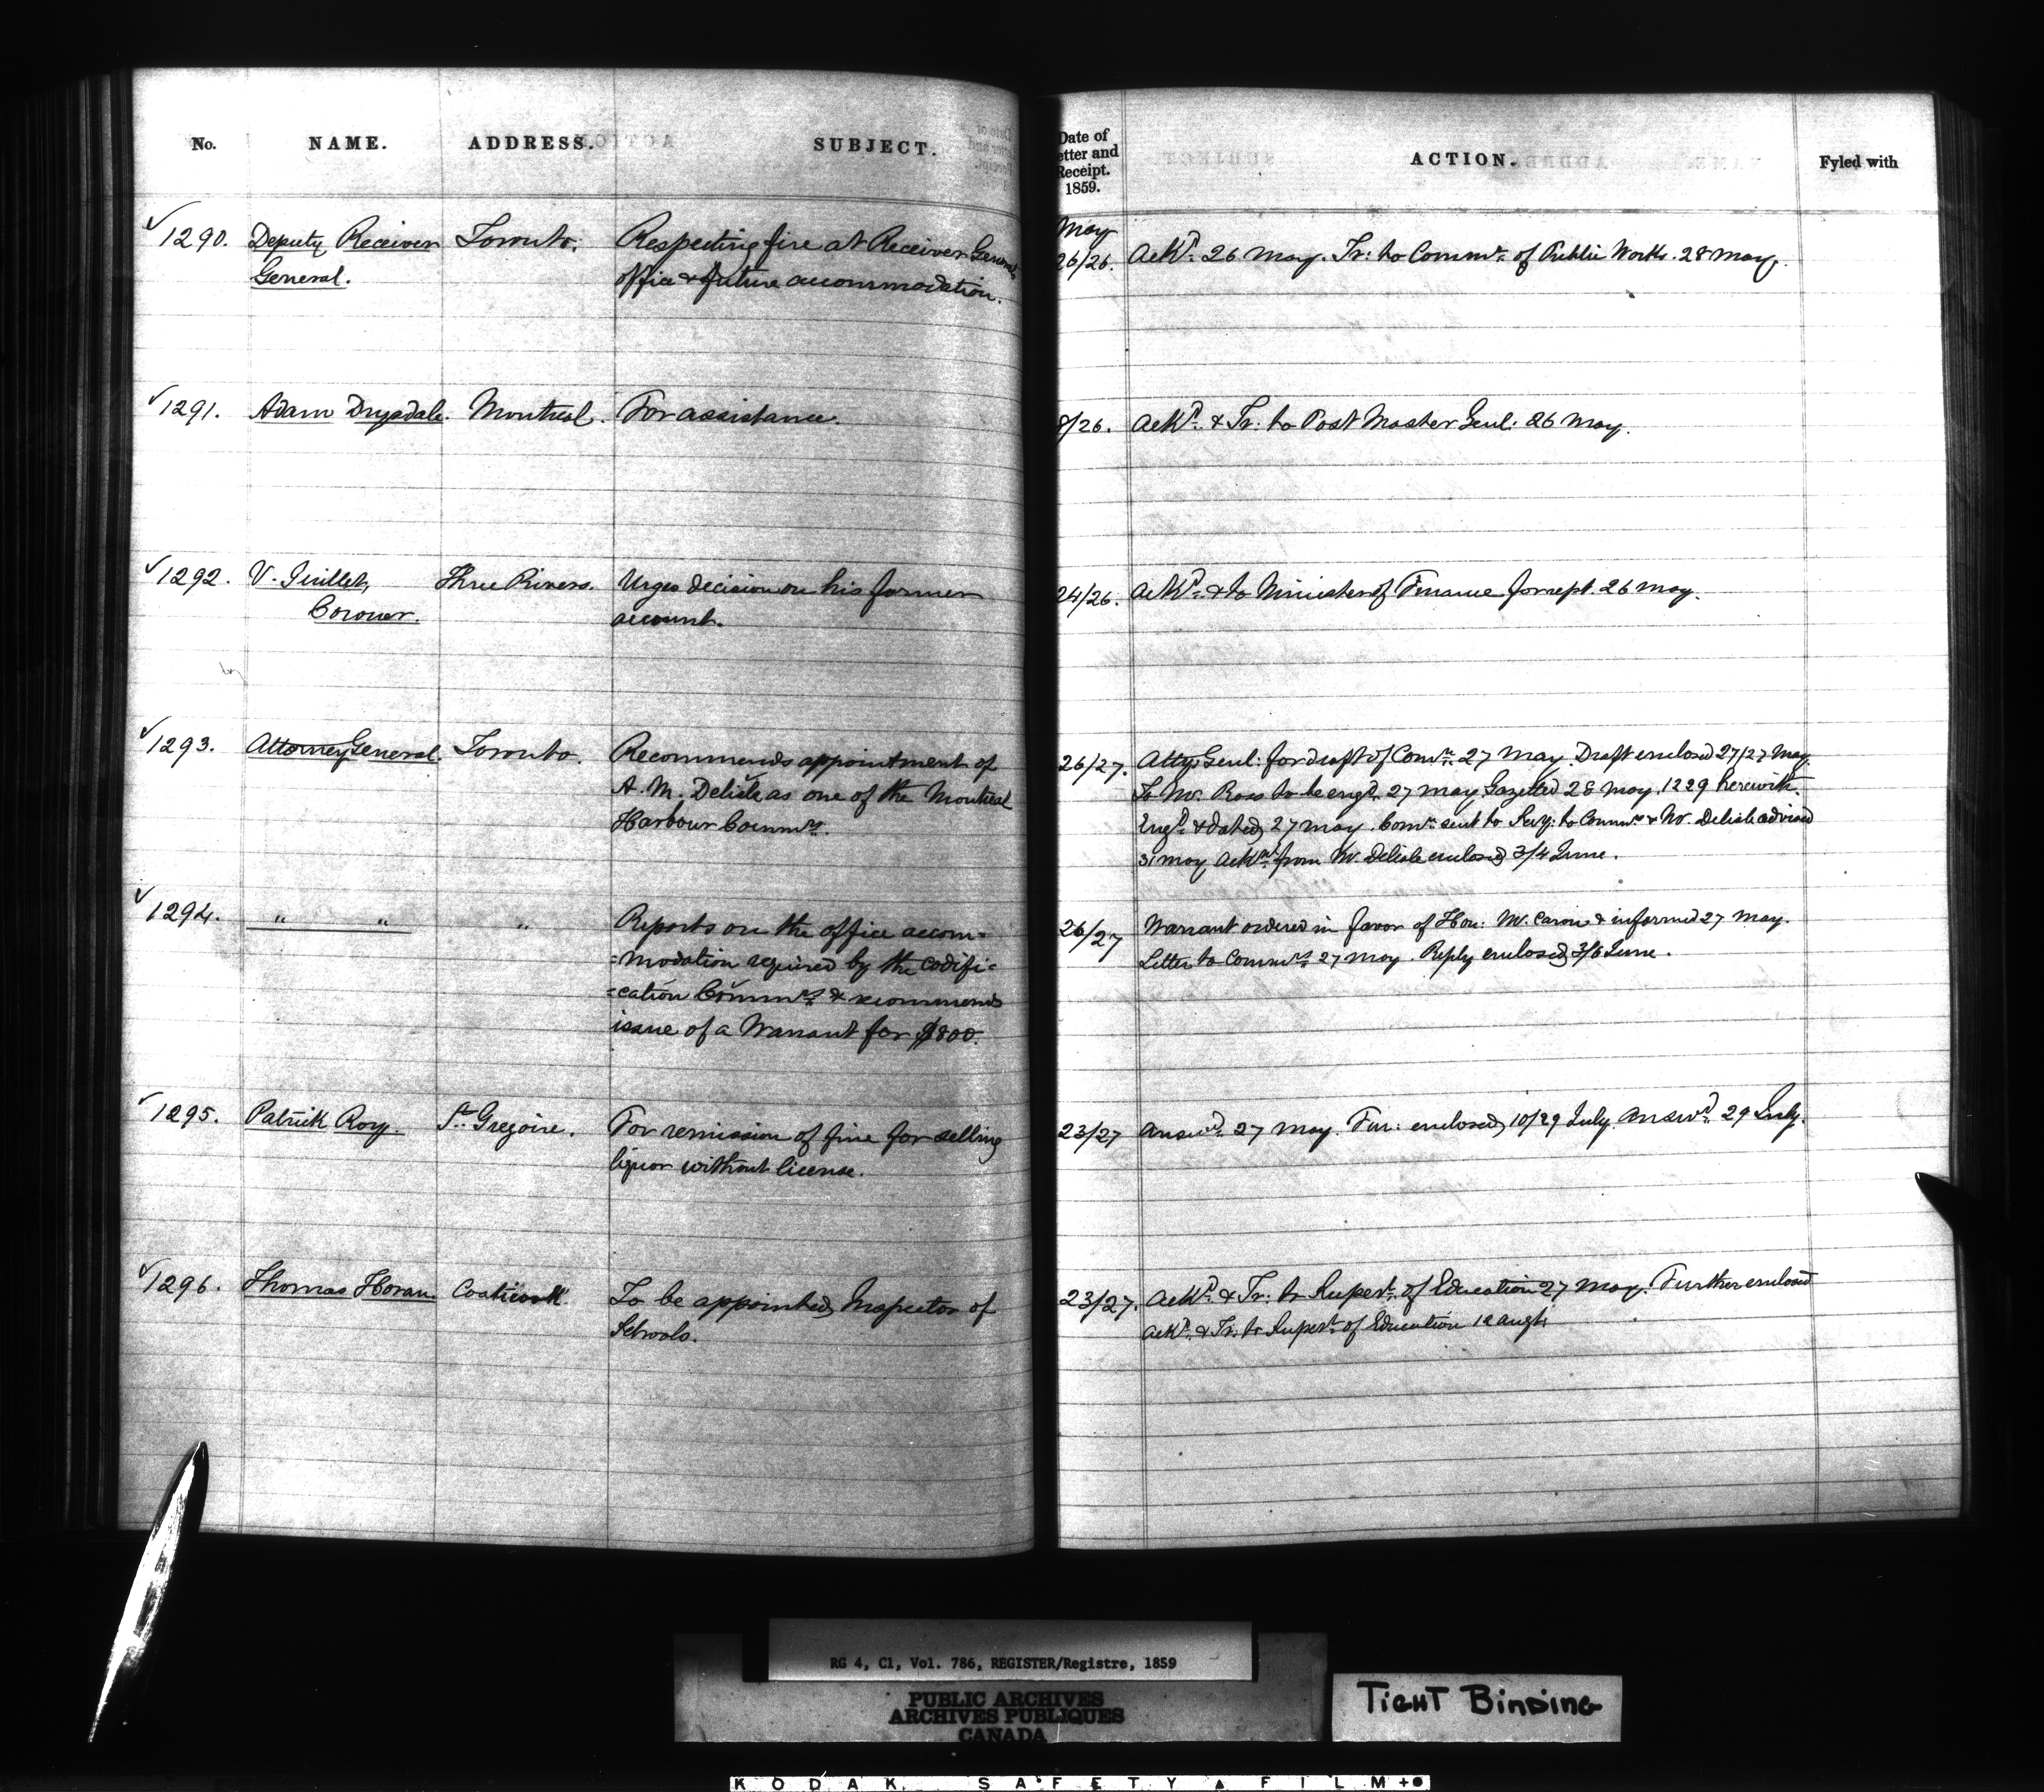 No. NAME. ADDRESS. SUBJECT.
✓1290. Deputy Receiver Toronto. Respecting fire at Receiver Generals
General. office & future accommodation.
✓1291. Adam Drysdale. Montreal. For assistance.
✓1292. V. Guillet, Three Rivers. Urges decision on his former
Coroner. account.
✓1293. Attorney General. Toronto. Recommends appointment of
A. M. Delisle as one of the Montreal
Harbour Commrs.
✓1294. " " " Reports on the office accom=
=modation required by the Codifi=
=cation Commrs & recommends
issue of a Warrant for $800.
✓1295. Patrick Roy. St. Gregoire. For remission of fine for selling
liquor without license.
✓1296. Thomas Horan. Coaticook. To be appointed Inspector of
Schools.
Date of
etter and
Receipt.
1859.
ACTION. Fyled with
May
26/26. Ackd. 26 May. Tr: to Commr. of Public Works. 28 May.
9/26. Ackd. & Tr: to Post Master Genl: 26 May.
24/26. Ackd. & to Minister of Finance for rept. 26 May.
26/27. Atty. Genl: for draft of Comn. 27 May. Draft enclosed 27/27 May.
To Mr. Ross to be engd. 27 May Gazetted 28 May, 1229 herewith.
Engd. & dated 27 May. Comn. sent to Secy: to Commrs & Mr. Delisle advised
31 May Ackmt. from Mr. Delisle enclosed 3/4 June.
26/27 Warrant ordered in favor of Hon: Mr. Caron & informed 27 May.
Letter to Commrs. 27 May. Reply enclosed 3/6 June.
23/27 Answd. 27 May. Fur: enclosed 10/29 July. Answd. 29 July.
23/27. Ackd. & Tr: to Supert. of Education 27 May. Further enclosed
Ackd. & Tr. to Supert. of Education 12 Augt.
RG 4, C1, Vol. 786, REGISTER/Registre, 1859
PUBLIC ARCHIVES
ARCHIVES PUBLIQUES
CANADA
TIGHT BINDING
KODAK SAFETY FILM